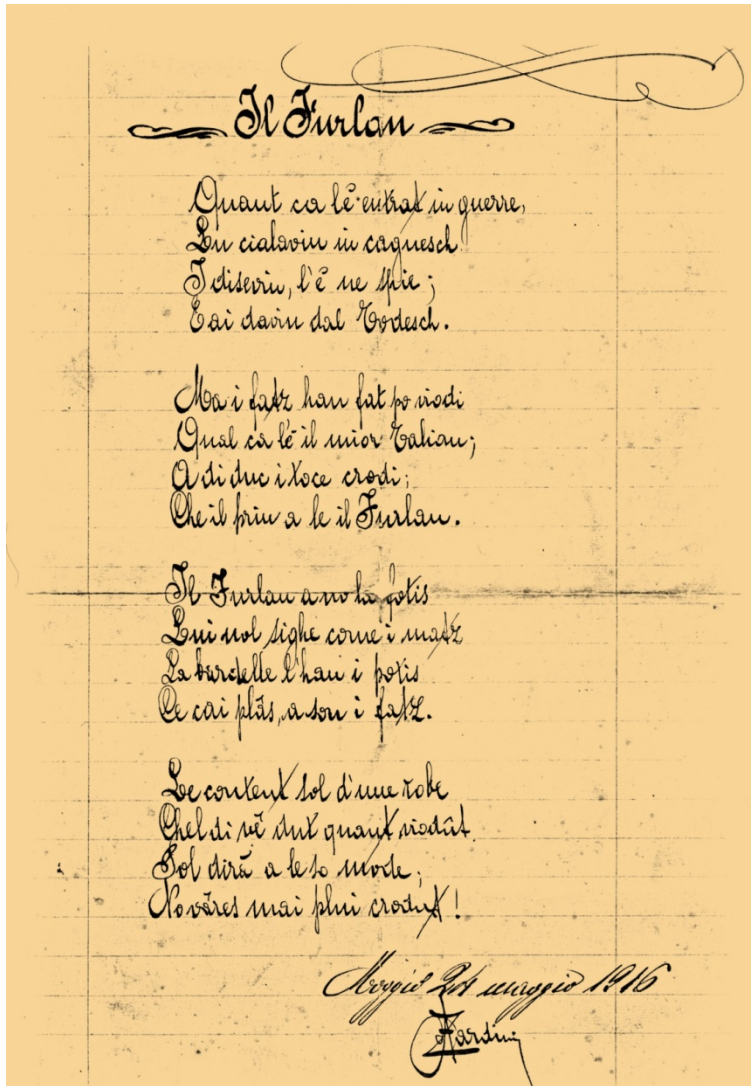 Il Furlan
Quant ca lê entrat in guerre,
Lu cialavin in cagnesch
I disevin, l'ê ne spie;
E ai davin dal Todesch.
Ma i fatz han fat po viodi
Qual ca lê il mior Talian;
A di duc i toce crodi;
Che il prin a le il Furlan.
Il Furlan a no ha fotis
Lui nol sighe come i matz
La bardelle l'han i potis
Ce cai plãs, a son i fatz.
Le content sol d'une robe
Chel di vê dut quant viodût
Sol dirã a le so mode;
No vares mai plui crodut!
Moggio 24 maggio 1916